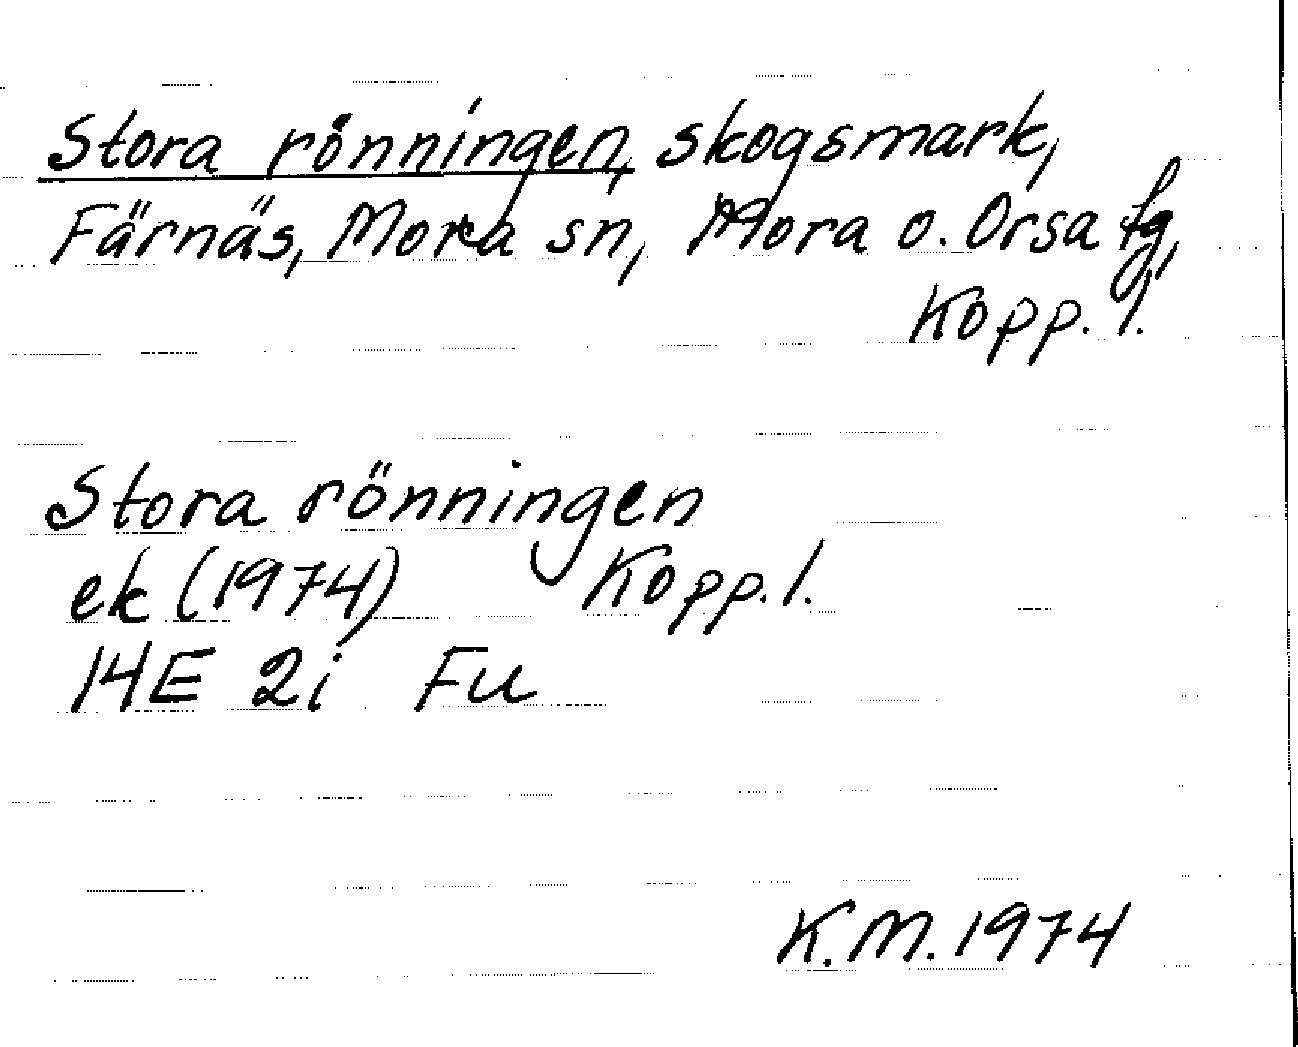 Stora rönningen, skogsmark,
Färnäs, Mora sn, Mora o. Orsa fg,
Kopp. l.
Stora rönningen
ek (1974) Kopp. l.
14E 2i Fu
K.M. 1974